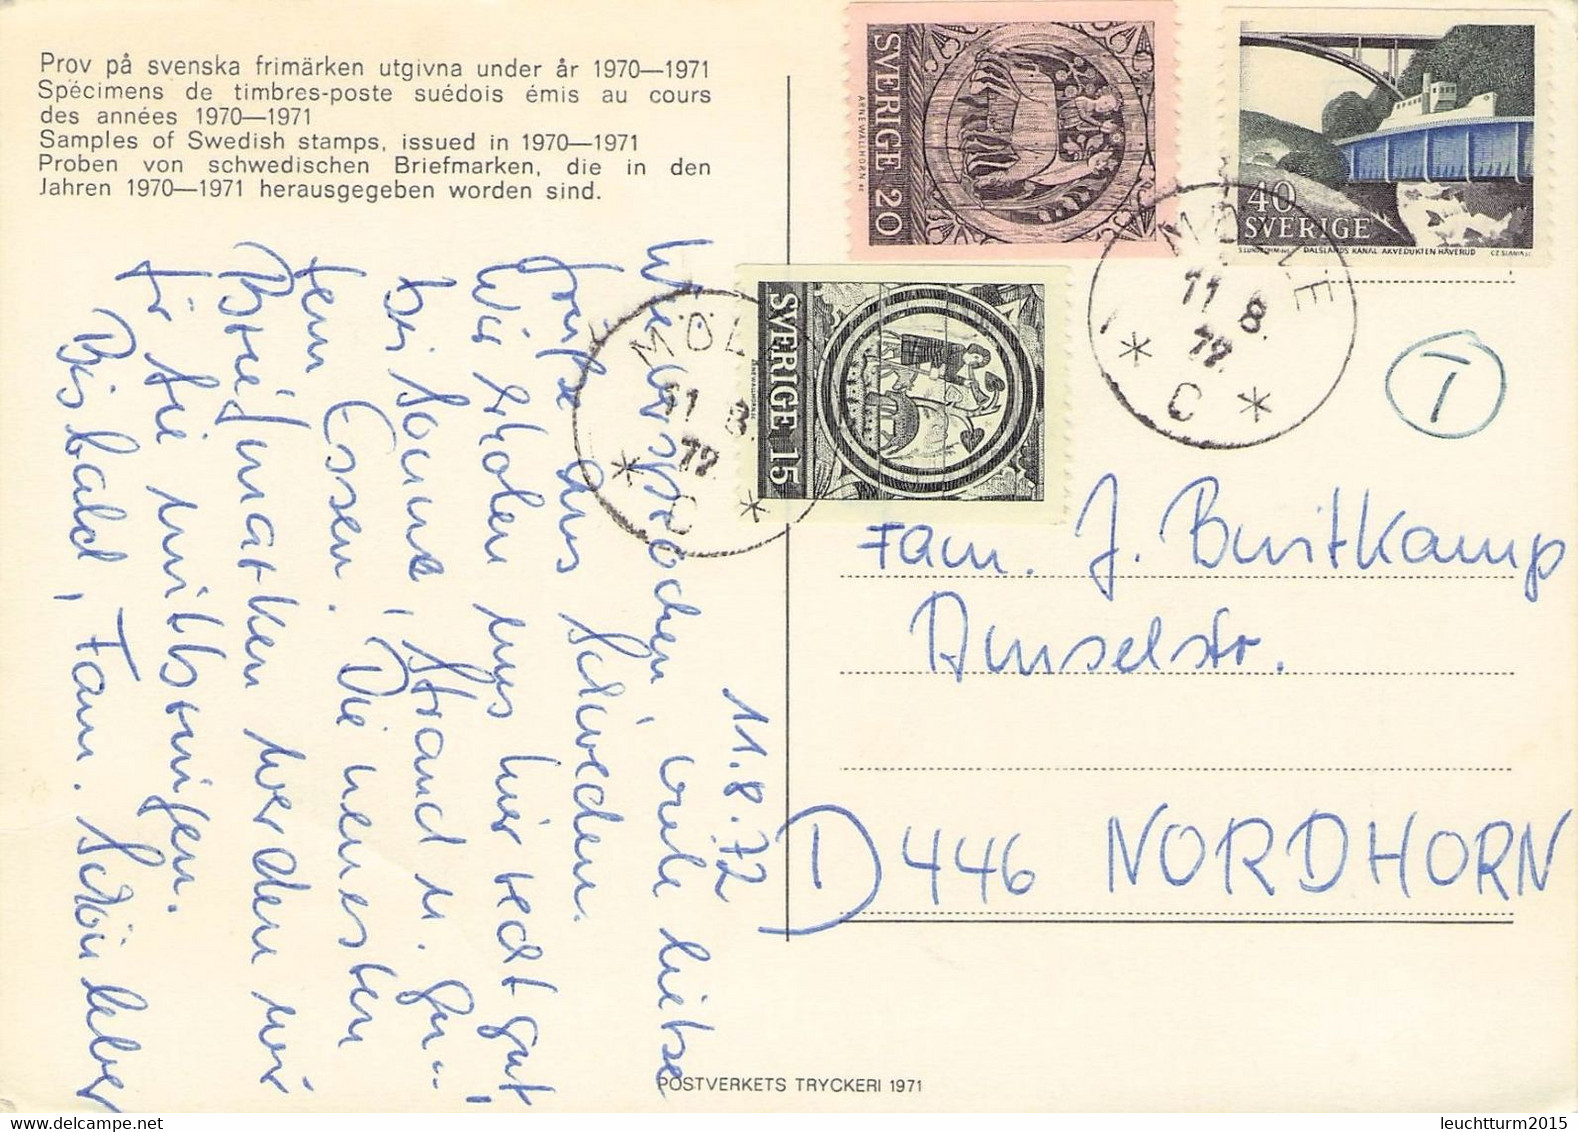 Prov på svenska frimärken utgivna under år 1970—1971
Spécimens de timbres-poste suédois émis au cours
des années 1970—1971
Samples of Swedish stamps, issued in 1970—1971
Proben von schwedischen Briefmarken, die in den
Jahren 1970—1971 herausgegeben worden sind.
SVERIGE 20
ARNE WALLHORN SC
40
SVERIGE
DALSLANDS KANAL AKVEDUKTEN HÅVERUD
CZ SLANIA SC
SVERIGE 15
MÖLLE
11 8.
72.
* C *
MÖL
11 8.
72.
* C *
T
11.8.72
Wie versprochen, viele liebe
Grüße aus Schweden.
Wir erholen uns hier recht gut,
bei Sonne, Strand u. gu-
tem Essen. Die neuesten
Briefmarken werden wir
für Sie mitbringen.
Bis bald, Fam.
Fam. J. Buitkamp
Amselstr.
D 446 NORDHORN
POSTVERKETS TRYCKERI 1971
leuchtturm2015